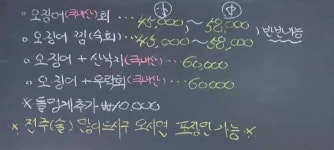 小 中
○ 오징어(국내산)회 … 45,000 ~ 58,000
○ 오징어 찜(숙회) … 45,000 ~ 58,000 ) 반반가능
○ 오징어 + 산낙지(국내산) … 60,000
○ 오징어 + 우럭회(국내산) … 60000
※ 돌멍게추가 ₩10,000
※ 전주(술) 맘 오시면 포장만 가능 ※